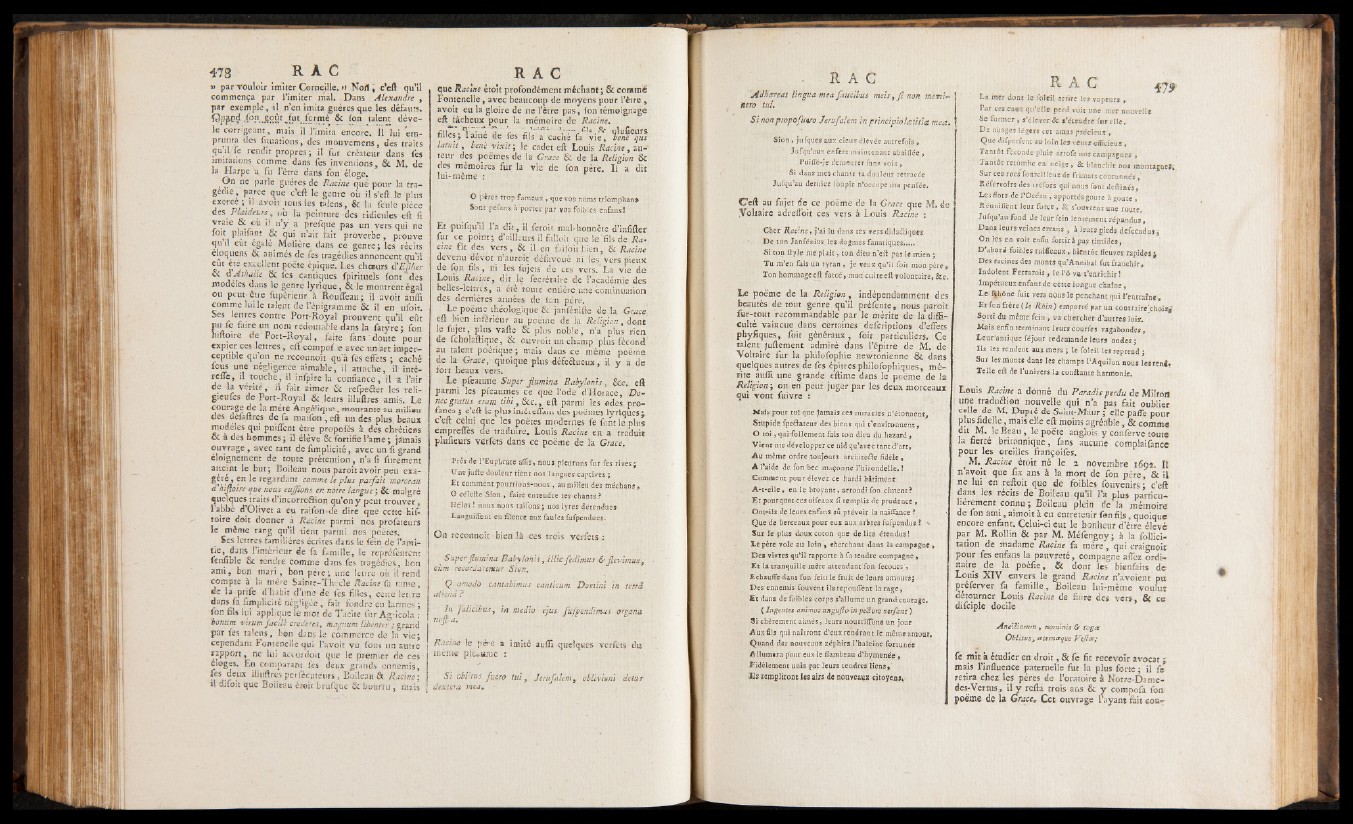 478 R A C
» par vouloir imiter Corneille. » Non ; c'est qu'il
commença par l'imiter mal. Dans Alexandre ,
par exemple, il n'en imita guères que les défauts.
Quand son goût fut formé & son talent déve-
le corrigeant, mais il l'imita encore. Il lui em-
prunta des situations, des mouvemens, des traits
qu'il se rendit propres ; il fut créateur dans ses
imitations comme dans ses inventions, & M. de
la Harpe a su l'être dans son éloge.
On ne parle guères de Racine que pour la tra-
gédie, parce que c'est le genre où il s'est le plus
exercé ; il avoit tous les talens, & la seule pièce
des Plaideurs, où la peinture des ridicules est si
vraie & où il n'y a presque pas un vers qui ne
soit plaisant & qui n'ait fait proverbe, prouve
qu'il eût égalé Molière dans ce genre ; les récits
éloquens & animés de ses tragédies annoncent qu'il
eût été excellent poëte épique. Les chœurs d'Esther
& d'Athalie & ses cantiques spirituels sont des
modèles dans le genre lyrique, & le montrent égal
ou peut-être supérieur à Rousseau ; il avoit aussi
comme lui le talent de l'épigramme & il en usoit.
Ses lettres contre Port-Royal prouvent qu'il eût
pu se faire un nom redoutable dans la satyre ; son
histoire de Port-Royal, faite sans doute pour
expier ces lettres, est composée avec un art imper-
ceptible qu'on ne reconnoît qu'à ses effets ; caché
sous une négligence aimable, il attache, il inté-
resse, il touche, il inspire la confiance, il a l'air
de la vérité, il fait aimer & respecter les reli-
gieuses de Port-Royal & leurs illustres amis. Le
courage de la mère Angélique, mourante au milieu
des désastres de sa maison, est un des plus beaux
modèles qui puissent être proposés à des chrétiens
& à des hommes ; il élève & fortifie l'ame ; jamais
ouvrage, avec tant de simplicité, avec un si grand
éloignement de toute prétention, n'a si sûrement
atteint le but ; Boileau nous paroît avoir peu exa-
géré, en le regardant comme le plus parfait morceau
d'histoire que nous eussions en notre langue ; & malgré
quelques traits d'incorrection qu'on y peut trouver,
l'abbé d'Olivet a eu raison de dire que cette his-
toire doit donner à Racine parmi nos prosateurs
le même rang qu'il tient parmi nos poëtes.
Ses lettres familières écrites dans le sein de l'ami-
tié, dans l'intérieur de sa famille, le représentent
sensible & tendre comme dans ses tragédies, bon
ami, bon mari, bon père ; une lettre où il rend
compte à la mère Sainte-Thècle Racine sa tante,
de la prise d'habit d'une de ses filles, cette lettre
dans sa simplicité négligée, fait fondre en larmes ;
son fils lui applique le mot de Tacite sur Agricola :
bonum virum facilè crederes, magnum libenter ; grand
par ses talens, bon dans le commerce de la vie ;
cependant Fontenelle qui l'avoit vu sous un autre
rapport, ne lui accordoit que le premier de ces
éloges. En comparant ses deux grands ennemis,
ses deux illustres persécuteurs, Boileau & Racine ;
il disoit que Boileau étoit brusque & bourru, mais
R A C
que Racine étoit profondément méchant ; & comme
Fontenelle, avec beaucoup de moyens pour l'être,
avoit eu la gloire de ne l'être pas, son témoignage
est fâcheux pour la mémoire de Racine.
filles ; l'aîné de ses fils a caché sa vie, bene qui
latuit, benè vixit ; le cadet est Louis Racine, au-
teur des poëmes de la Grace & de la Religion &
des mémoires sur la vie de son père. Il a dit
lui-même :
O pères trop fameux, que vos noms triomphans
Sont pesans à porter par vos foibles enfans !
Et puisqu'il l'a dit, il seroit mal-honnête d'insister
sur ce point ; d'ailleurs il falloit que le fils de Ra-
cine fît des vers, & il en faisoit bien, & Racine
devenu dévot n'auroit désavoué ni les vers pieux
de son fils, ni les sujets de ces vers. La vie de
Louis Racine, dit le secrétaire de l'académie des
belles-lettres, a été toute entière une continuation
des dernières années de son père.
Le poëme théologique & janséniste de la Grace
est bien inférieur au poëme de la Religion, dont
le sujet, plus vaste & plus noble, n'a plus rien
de scholastique, & ouvroit un champ plus fécond
au talent poëtique ; mais dans ce même poëme
de la Grace, quoique plus défectueux, il y a de
fort beaux vers.
Le pseaume Super flumina Babylonis, &c. est
parmi les pseaumes ce que l'ode d'Horace, Do-
nec gratus eram tibi, &c., est parmi les odes pro-
fanes ; c'est le plus intéressant des poëmes lyriques ;
c'est celui que les poëtes modernes se sont le plus
empressés de traduire. Louis Racine en a traduit
plusieurs versets dans ce poëme de la Grace.
Près de l'Euphrate assis, nous pleurons sur ses rives ;
Une juste douleur tient nos langues captives ;
Et comment pourrions-nous, au milieu des méchans,
O céleste Sion, faire entendre tes chants ?
Hélas ! nous nous taisons ; nos lyres détendues
Languissent en silence aux saules suspendues.
On reconnoît bien là ces trois versets :
Super flumina Babylonis, illic sedimus & flevimus,
cùm recordaremur Sion.
Quomodo cantabimus canticum Domini in terrâ
alienâ ?
In salicibus, in medio ejus suspendimus organa
nostra.
Racine le père a imité aussi quelques versets du
même pseaume :
Si oblitus fuero tui, Jerusalem, oblivioni detur
dextera mea.
R A C
Adhæreat lingua mea faucibus meis, si non memi-
nero tui.
Si non proposuero Jerusalem in principio lætitiæ meæ.
Sion, jusques aux cieux élevée autrefois,
Jusqu'aux enfers maintenant abaissée,
Puissé-je demeurer sans voix,
Si dans mes chants ta douleur retracée
Jusqu'au dernier soupir n'occupe ma pensée.
C'est au sujet de ce poëme de la Grace que M. de
Voltaire adressoit ces vers à Louis Racine :
Cher Racine, j'ai lu dans tes vers didactiques
De ton Jansénius les dogmes fanatiques.....
Si ton style me plaît, ton dieu n'est pas le mien ;
Tu m'en fais un tyran, je veux qu'il soit mon père,
Ton hommage est forcé, mon culte est volontaire, &c.
Le poëme de la Religion, indépendamment des
beautés de tout genre qu'il présente, nous paroît
sur-tout recommandable par le mérite de la diffi-
culté vaincue dans certaines descriptions d'effets
physiques, soit généraux, soit particuliers. Ce
talent justement admiré dans l'épitre de M. de
Voltaire sur la philosophie newtonienne & dans
quelques autres de ses épitres philosophiques, mé-
rite aussi une grande estime dans le poëme de la
Religion ; on en peut juger par les deux morceaux
qui vont suivre :
Mais pour toi que jamais ces miracles n'étonnent,
Stupide spectateur des biens qui t'environnent,
O toi, qui follement fais ton dieu du hazard,
Viens me développer ce nid qu'avec tant d'art,
Au même ordre toujours architecte fidele,
A l'aide de son bec maçonne l'hirondelle.!
Comment pour élever ce hardi bâtiment
A-t-elle, en le broyant, arrondi son ciment ?
Et pourquoi ces oiseaux si remplis de prudence,
Ont-ils de leurs enfans sû prévoir la naissance ?
Que de berceaux pour eux aux arbres suspendus !
Sur le plus doux coton que de lits étendus!
Le père vole au loin, cherchant dans la campagne,
Des vivres qu'il rapporte à sa tendre compagne,
Et la tranquille mère attendant son secours,
Echauffe dans son sein le fruit de leurs amours;
Des ennemis souvent ils repoussent la rage,
Et dans de foibles corps s'allume un grand courage.
( Ingentes animos angusto in pectore versant )
Si chèrement aimés, leurs nourrissons un jour
Aux fils qui naîtront d'eux rendront le même amour,
Quand des nouveaux zéphirs l'haleine fortunée
Allumera pour eux le flambeau d'hymenée,
Fidèlement unis par leurs tendres liens,
Ils rempliront les airs de nouveaux citoyens.
R A C 479
La mer dont le soleil attire les vapeurs,
Par ces eaux qu'elle perd voit une mer nouvelle
Se former, s'élever & s'étendre sur elle.
De nuages légers cet amas précieux,
Que dispersent au loin les vents officieux,
Tantôt féconde pluie arrose nos campagnes,
Tantôt retombe en neige, & blanchit nos montagnes.
Sur ces rocs sourcilleux de frimats couronnés,
Réservoirs des trésors qui nous sont destinés,
Les flots de l'Océan, apportés goute à goute,
Réunissent leur force, & s'ouvrent une route.
Jusqu'au fond de leur sein lentement répandus,
Dans leurs veines errans, à leurs pieds descendus,
On les en voit enfin sortir à pas timides,
D'abord foibles ruisseaux, bientôt fleuves rapides ;
Des racines des monts qu'Annibal sut franchir,
Indolent Ferrarois, le Pô va t'enrichir !
Impétueux enfant de cette longue chaîne,
Le Rhône suit vers nous le penchant qui l'entraîne,
Et son frère ( le Rhin ) emporté par un contraire choix,
Sorti du même sein, va chercher d'autres loix.
Mais enfin terminant leurs courses vagabondes,
Leur antique séjour redemande leurs ondes ;
Ils les rendent aux mers ; le soleil les reprend ;
Sur les monts dans les champs l'Aquilon nous les rend.
Telle est de l'univers la constante harmonie.
Louis Racine a donné du Paradis perdu de Milton
une traduction nouvelle qui n'a pas fait oublier
celle de M. Dupré de Saint-Maur ; elle passe pour
plus fidelle, mais elle est moins agréable, & comme
dit M. le Beau, le poëte anglois y conserve toute
la fierté britannique, sans aucune complaisance
pour les oreilles françoises.
M. Racine étoit né le 2 novembre 1692. Il
n'avoit que six ans à la mort de son père, & il
ne lui en restoit que de foibles souvenirs ; c'est
dans les récits de Boileau qu'il l'a plus particu-
lièrement connu ; Boileau plein de la mémoire
de son ami, aimoit à en entretenir son fils, quoique
encore enfant. Celui-ci eut le bonheur d'être élevé
par M. Rollin & par M. Mésenguy ; à la sollici-
tation de madame Racine sa mère, qui craignoit
pour ses enfans la pauvreté, compagne assez ordi-
naire de la poësie, & dont les bienfaits de
Louis XIV envers le grand Racine n'avoient pu
préserver sa famille, Boileau lui-même voulut
détourner Louis Racine de faire des vers, & ce
disciple docile
Anciliorum, nominis & togæ
Oblitus, æternæque Vestæ ;
se mit à étudier en droit, & se fit recevoir avocat ;
mais l'influence paternelle fut la plus forte ; il se
retira chez les pères de l'oratoire à Notre-Dame-
des-Vertus, il y resta trois ans & y composa son
poëme de la Grace. Cet ouvrage l'ayant fait con-